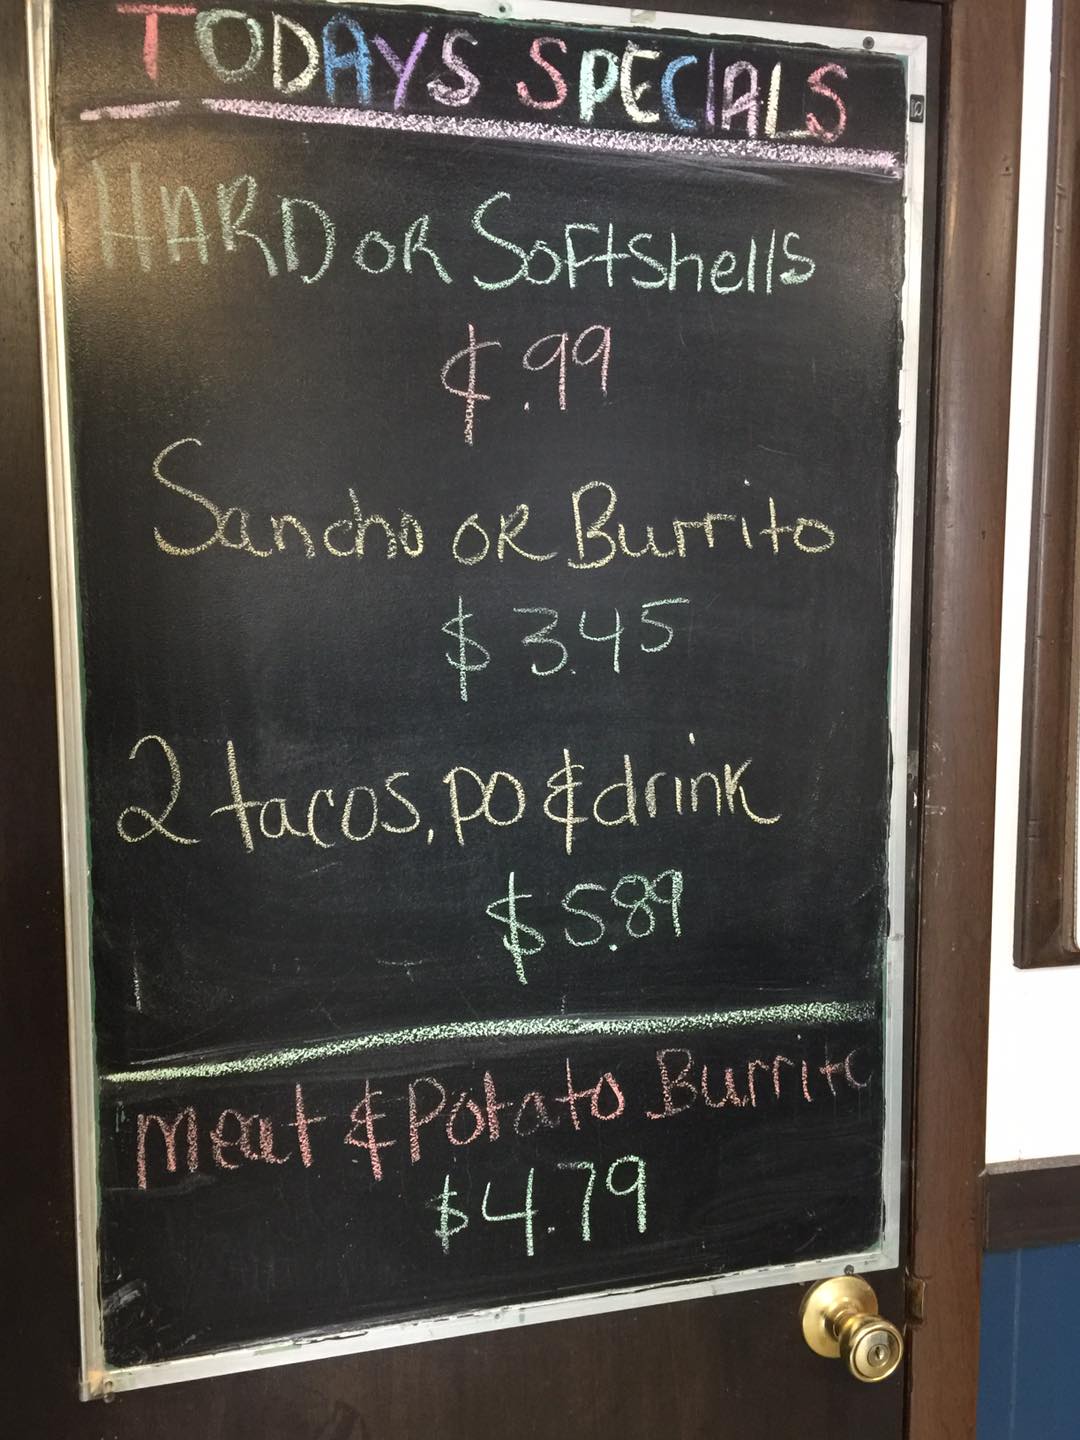 TODAYS SPECIALS
HARD OR Softshells
$.99
Sancho OR Burrito
$3.45
2 tacos, po & drink
$5.89
Meat & Potato Burrito
$4.79